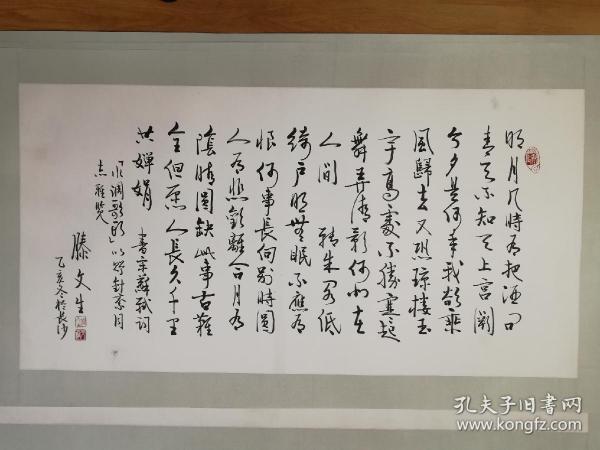 明月几时有把酒问
青天不知天上宫阙
今夕是何年我欲乘
风归去又恐琼楼玉
宇高处不胜寒起
舞弄清影何似在
人间 转朱阁低
绮户照无眠不应有
恨何事长向别时圆
人有悲欢离合月有
阴晴圆缺此事古难
全但愿人长久千里
共婵娟 书宋苏轼词
水调歌头以
志雅览
滕文生
乙亥冬於长沙
孔夫子旧书网
www.kongfz.com